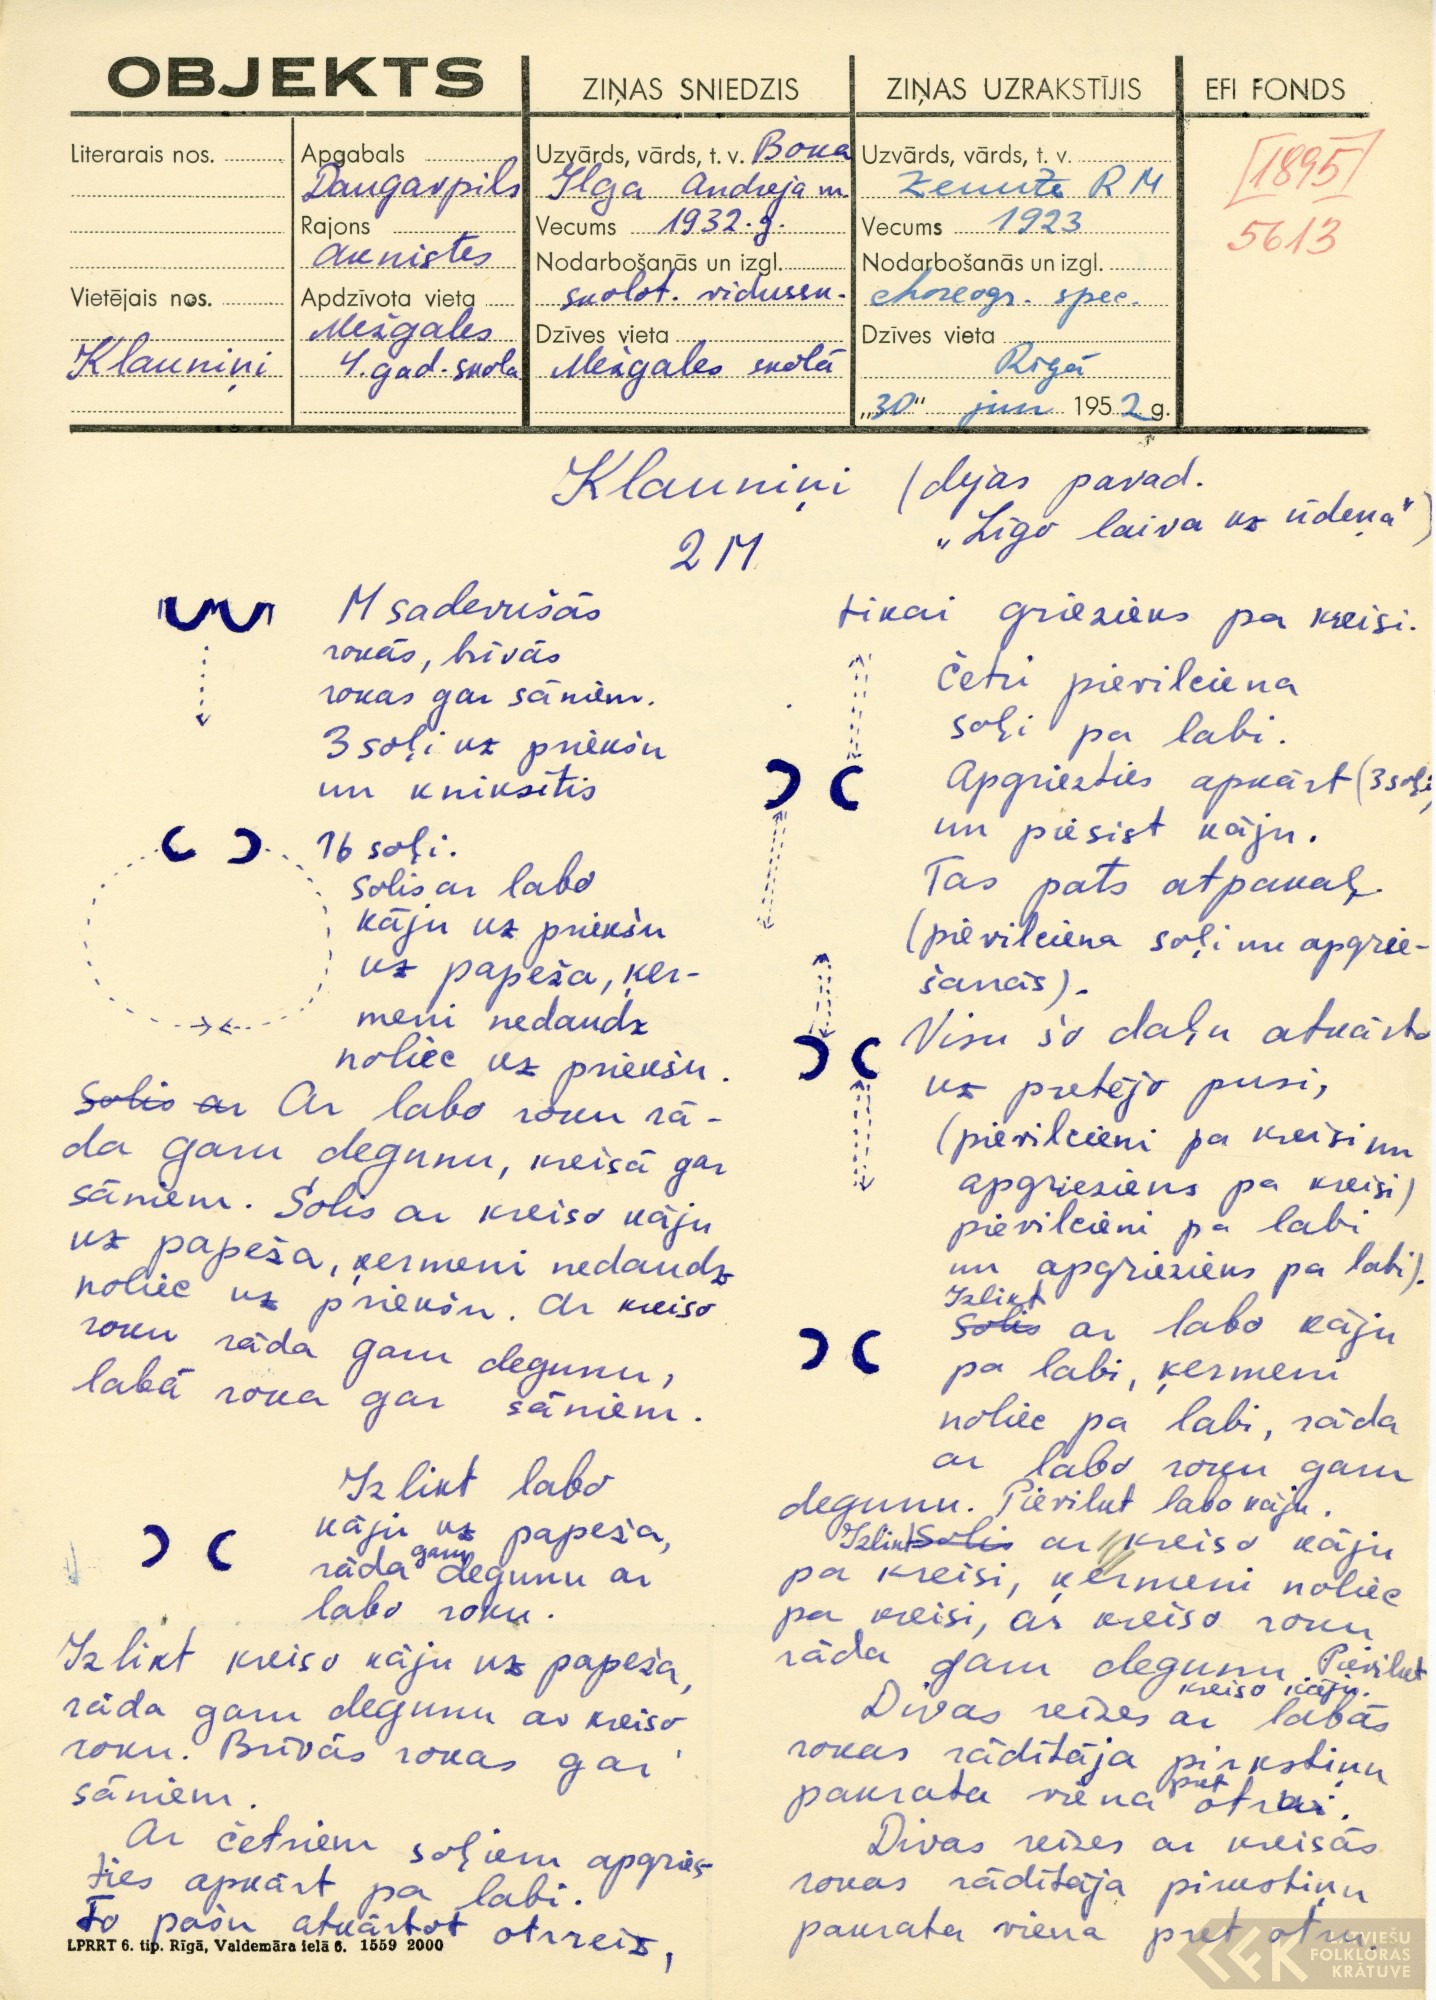 OBJEKTS
ZIŅAS SNIEDZIS
ZIŅAS UZRAKSTĪJIS
EFI FONDS
Literarais nos.
Vietējais nos.
Klauniņi
Apgabals
Daugavpils
Rajons
Aknistes
Apdzīvota vieta
Mežgales
4. gad. skola
Uzvārds, vārds, t. v. Boka
Ilga Andreja m.
Vecums 1932. g.
Nodarbošanās un izgl.
skolot. vidussk.
Dzīves vieta
Mežgales skolā
Uzvārds, vārds, t. v.
R M
Vecums 1923
Nodarbošanās un izgl.
choreogr. spec.
Dzīves vieta
Rīgā
„30" jun 1952 g.
[1895]
5613
Klauniņi (dejas pavad.
„Līgo laiva uz ūdeņa")
2 M
M sadevušās
rokās, brīvās
rokas gar sāniem.
3 soļi uz priekšu
un kniksītis
16 soļi.
Solis ar labo
kāju uz priekšu
uz papeža, ķer-
meni nedaudz
noliec uz priekšu.
Solis ar Ar labo roku rā-
da garu degunu, kreisā gar
sāniem. Solis ar kreiso kāju
uz papeža, ķermeni nedaudz
noliec uz priekšu. Ar kreiso
roku rāda garu degunu,
labā roka gar sāniem.
Izlikt labo
kāju uz papeža,
rāda garu degunu ar
labo roku.
Izlikt kreiso kāju uz papeža,
rāda garu degunu ar kreiso
roku. Brīvās rokas gar
sāniem.
Ar četriem soļiem apgries-
ties apkārt pa labi.
To pašu atkārtot otrreiz,
tikai grieziens pa kreisi.
Četri pievilciena
soļi pa labi.
Apgriezties apkārt (3 soļi)
un piesist kāju.
Tas pats atpakaļ.
(pievilciena soļi un apgrie-
šanās).
Visu šo daļu atkārto
uz pretējo pusi,
(pievilcieni pa kreisi un
apgrieziens pa kreisi)
pievilcieni pa labi
un apgrieziens pa labi).
Izlikt
Solis ar labo kāju
pa labi, ķermeni
noliec pa labi, rāda
ar labo roku garu
degunu. Pievilkt labo kāju.
Izlikt Solis ar kreiso kāju
pa kreisi, ķermeni noliec
pa kreisi, ar kreiso roku
rāda garu degunu. Pievilkt
kreiso kāju.
Divas reizes ar labās
rokas rādītāja pirkstiņu
pakrata viena pret otrai.
Divas reizes ar kreisās
rokas rādītāja pirkstiņu
pakrata viena pret otru.
LPRRT 6. tip. Rīgā, Valdemāra ielā 6. 1559 2000
LATVIEŠU
FOLKLORAS
KRĀTUVE